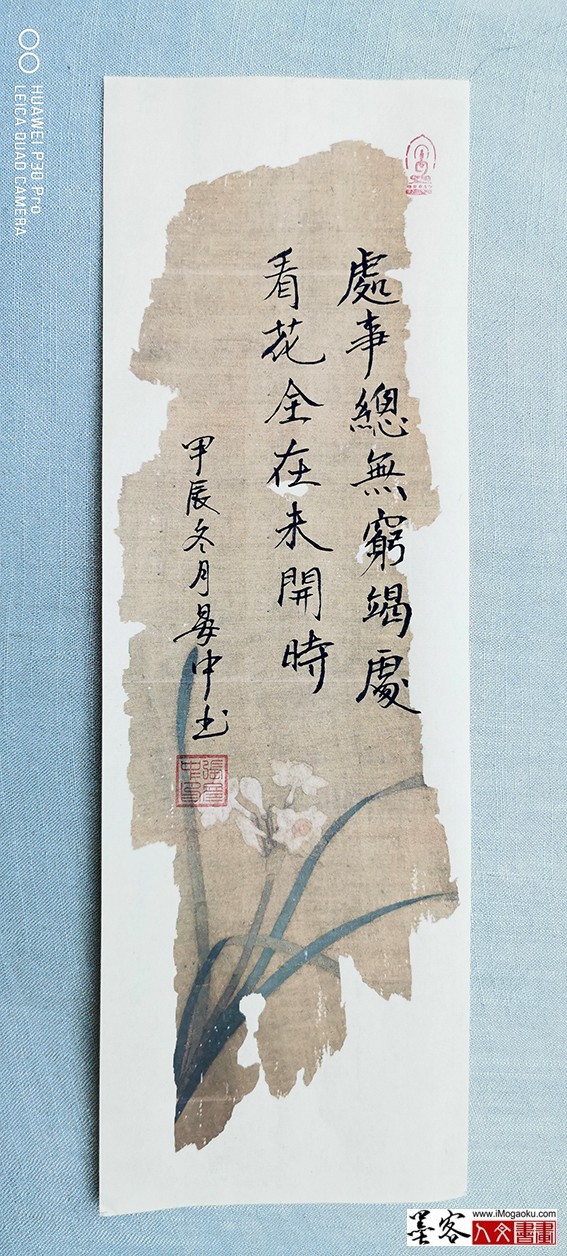 處事總無窮竭處
看花全在未開時
甲辰冬月晏中书
HUAWEI P30 Pro
LEICA QUAD CAMERA
www.iMogaoku.com
墨客人文書畫